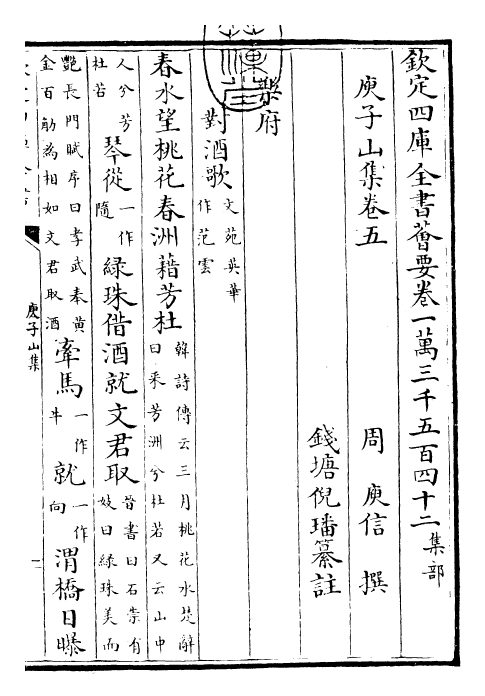 欽定四庫全書薈要卷一萬三千五百四十二集部
庾子山集卷五
周 庾信 撰
錢塘倪璠纂註
樂府
對酒歌文苑英華作范雲
春水望桃花春洲藉芳杜韓詩傳云三月桃花水楚辭曰采芳洲兮杜若又云山中
人兮芳杜若琴從一作隨綠珠借酒就文君取晉書曰石崇有妓曰綠珠美而
艷長門賦序曰孝武奉黃金百觔為相如文君取酒牽馬一作牛就一作向渭橋日曝
庾子山集
一